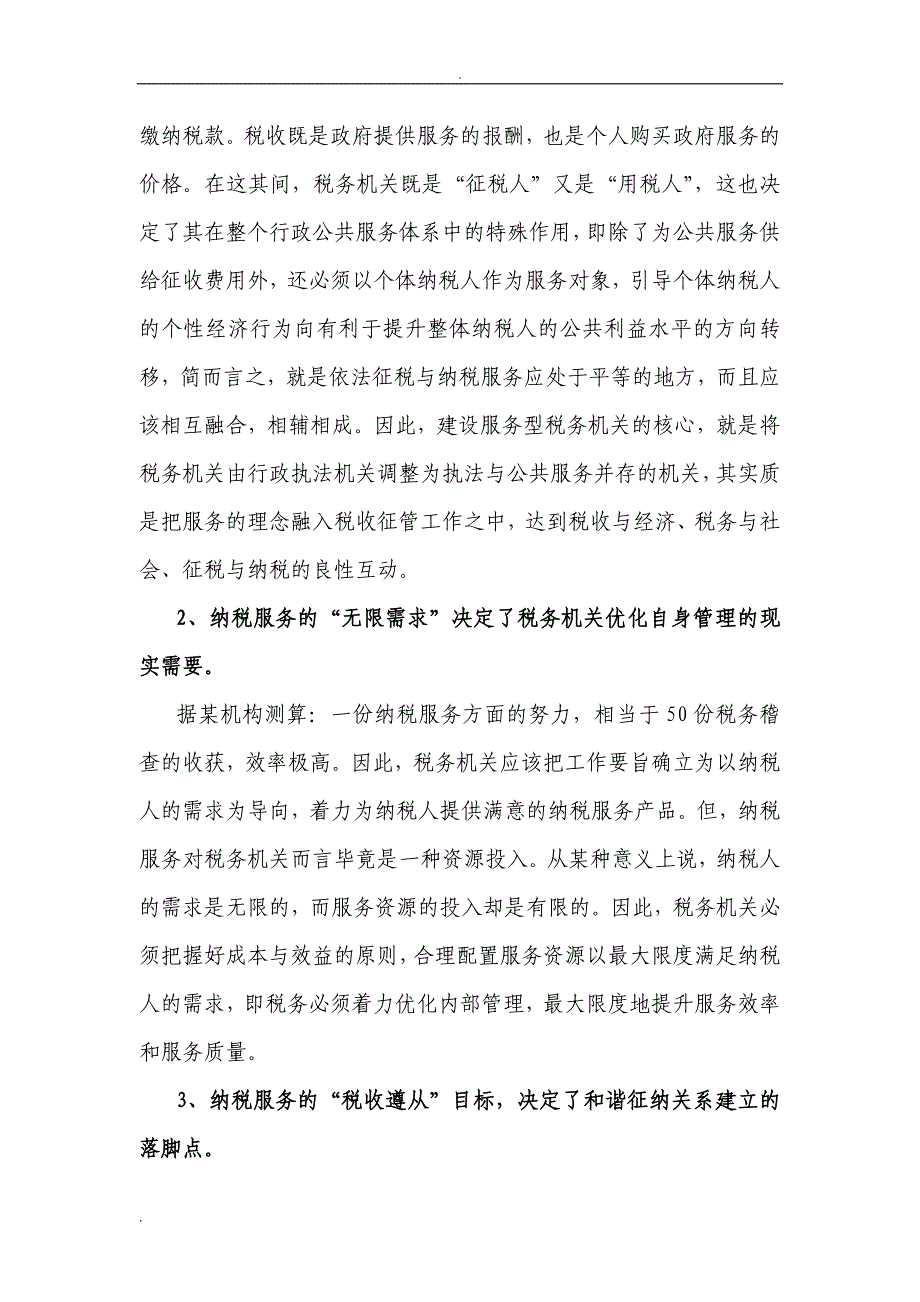 缴纳税款。税收既是政府提供服务的报酬，也是个人购买政府服务的
价格。在这其间，税务机关既是“征税人”又是“用税人”，这也决
定了其在整个行政公共服务体系中的特殊作用，即除了为公共服务供
给征收费用外，还必须以个体纳税人作为服务对象，引导个体纳税人
的个性经济行为向有利于提升整体纳税人的公共利益水平的方向转
移，简而言之，就是依法征税与纳税服务应处于平等的地方，而且应
该相互融合，相辅相成。因此，建设服务型税务机关的核心，就是将
税务机关由行政执法机关调整为执法与公共服务并存的机关，其实质
是把服务的理念融入税收征管工作之中，达到税收与经济、税务与社
会、征税与纳税的良性互动。
2、纳税服务的“无限需求”决定了税务机关优化自身管理的现
实需要。
据某机构测算：一份纳税服务方面的努力，相当于 50 份税务稽
查的收获，效率极高。因此，税务机关应该把工作要旨确立为以纳税
人的需求为导向，着力为纳税人提供满意的纳税服务产品。但，纳税
服务对税务机关而言毕竟是一种资源投入。从某种意义上说，纳税人
的需求是无限的，而服务资源的投入却是有限的。因此，税务机关必
须把握好成本与效益的原则，合理配置服务资源以最大限度满足纳税
人的需求，即税务必须着力优化内部管理，最大限度地提升服务效率
和服务质量。
3、纳税服务的“税收遵从”目标，决定了和谐征纳关系建立的
落脚点。